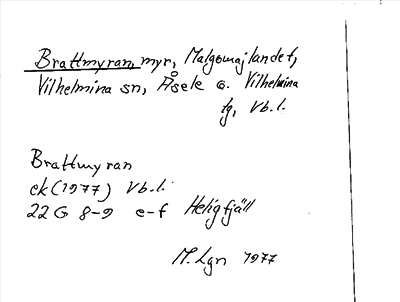 Brattmyran, myr, Malgomajlandet,
Vilhelmina sn, Åsele o. Vilhelmina
tg, Vb.l.
Brattmyran
ek (1977) Vb.l.
22 G 8-9 e-f Heligfjäll
M. Lgn 1977